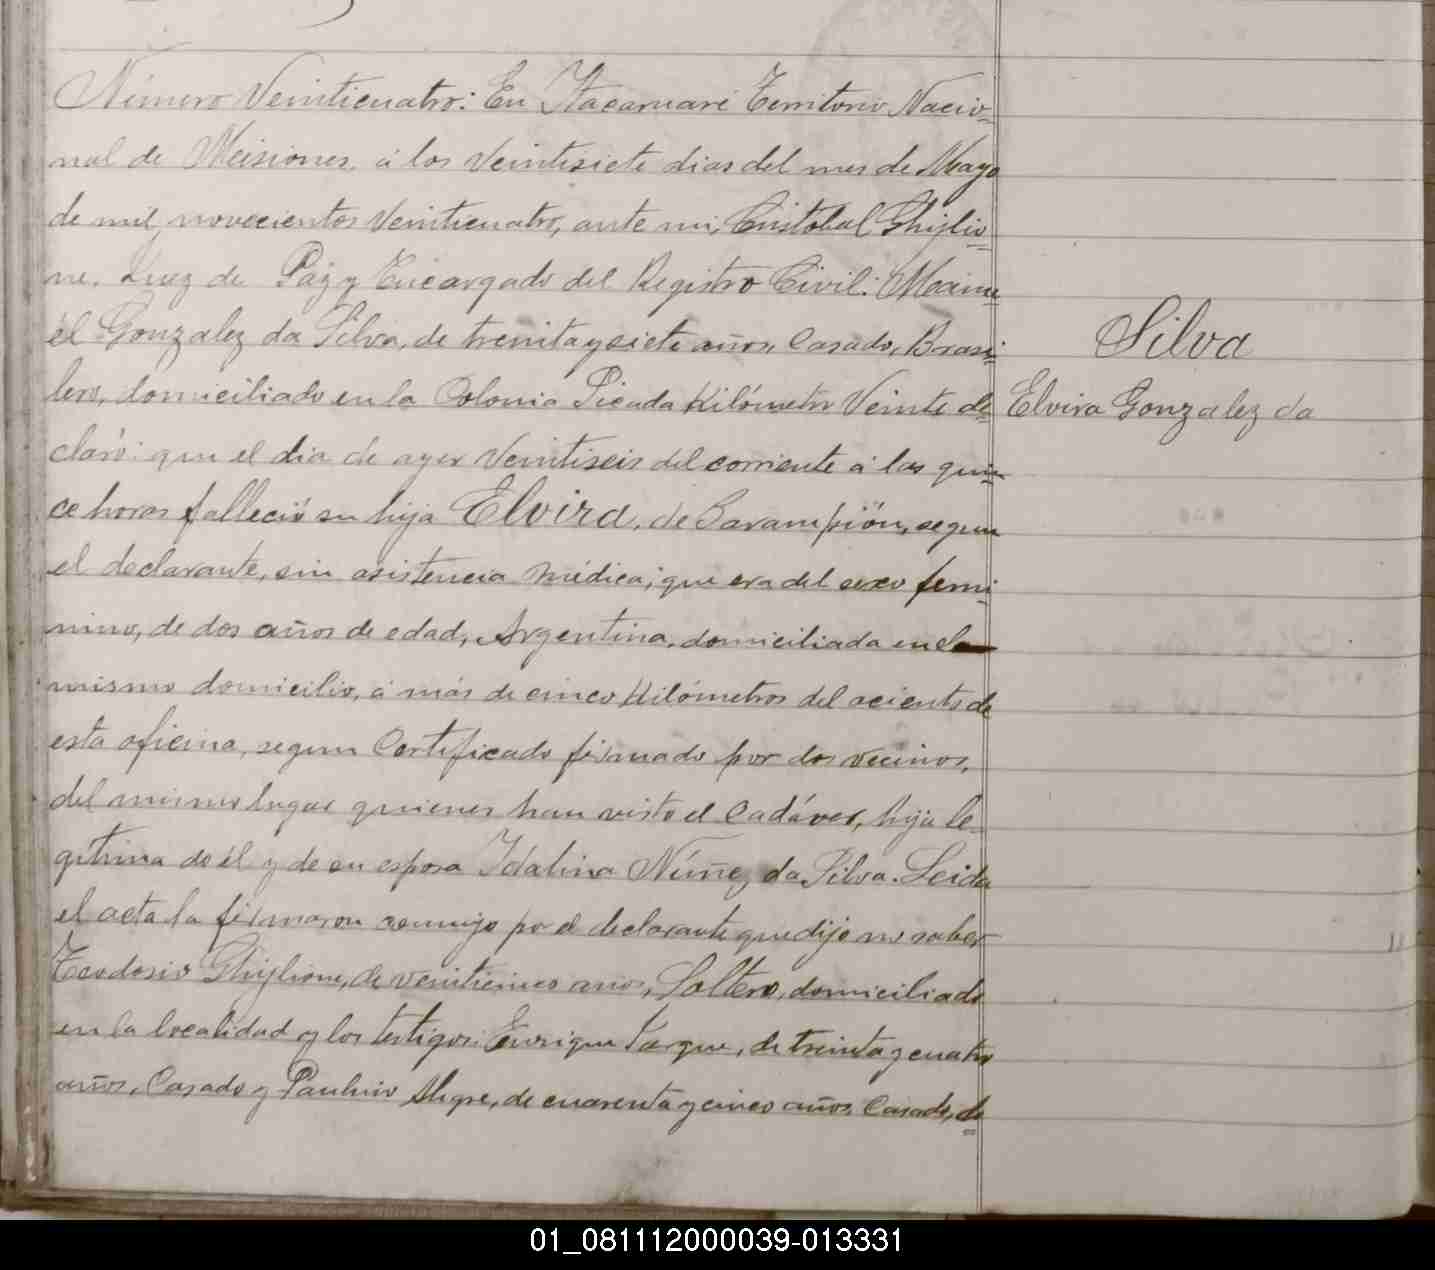 Número Veinticuatro: En Itacaruaré Territorio Nacio-
nal de Misiones, á los veintisiete dias del mes de Mayo
de mil novecientos veinticuatro, ante mi, Cristobal Ghiglio-
ne, Juez de Paz y Encargado del Registro Civil: Manu-
él Gonzalez da Silva, de treinta y siete años, Casado, Brasi-
lero, domiciliado en la Colonia Picada Kilómetro Veinte de-
claró: que el dia de ayer veintiseis del corriente á las quin-
ce horas falleció su hija Elvira, de Sarampión, segun
el declarante, sin asistencia médica; que era del sexo femi-
nino, de dos años de edad, Argentina, domiciliada en el
mismo domicilio, á más de cinco Kilómetros del aciento de
esta oficina, segun Certificado firmado por dos vecinos,
del mismo lugar quienes han visto el Cadáver, hija le-
gitima de él y de su esposa Idalina Núñez da Silva. Leida
el acta la firmaron conmigo por el declarante que dijo no saber
Teodosio Ghiglione, de veinticinco años, Soltero, domiciliado
en la localidad y los testigos: Enrique de treinta y cuatro
años, Casado y Paulino Alegre, de cuarenta y cinco años, Casado, de
Silva
Elvira Gonzalez da
01_081112000039-013331